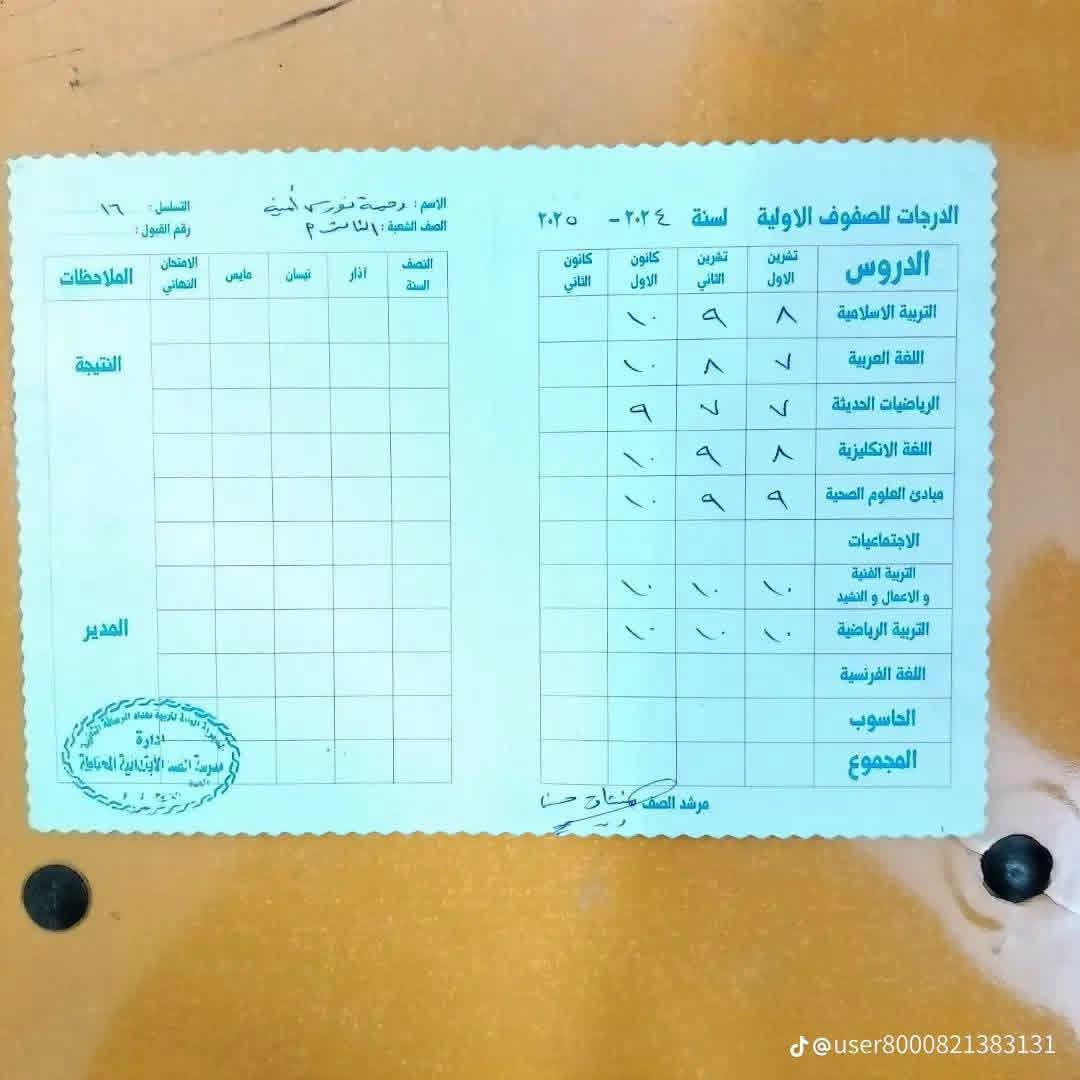 الدرجات للصفوف الاولية لسنة ٢٠٢٤ - ٢٠٢٥
الدروس تشرين الاول تشرين الثاني كانون الاول كانون الثاني
التربية الاسلامية ٨ ٩ ١٠
اللغة العربية ٧ ٨ ١٠
الرياضيات الحديثة ٧ ٧ ٩
اللغة الانكليزية ٨ ٩ ١٠
مبادئ العلوم الصحية ٩ ٩ ١٠
الاجتماعيات
التربية الفنية و الاعمال و النشيد ١٠ ١٠ ١٠
التربية الرياضية ١٠ ١٠ ١٠
اللغة الفرنسية
الحاسوب
المجموع
مرشد الصف
الاسم : نورس
التسلسل : ١٦
الصف الشعبة : الثالث م
رقم القبول :
النصف السنة آذار نيسان مايس الامتحان النهائي الملاحظات
النتيجة
المدير
ادارة
@user8000821383131